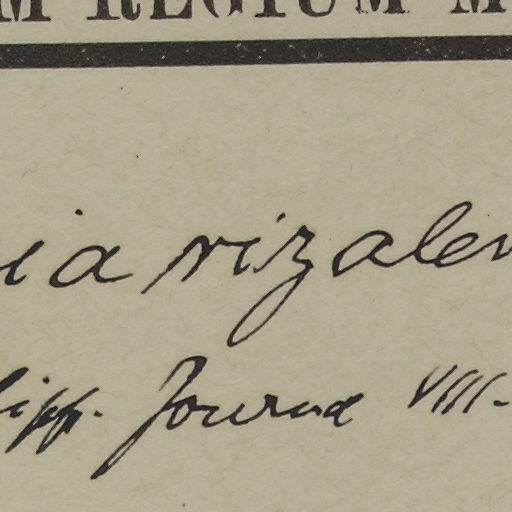 M REGIUM M
ia rizalen
lipp. Journal VIII.